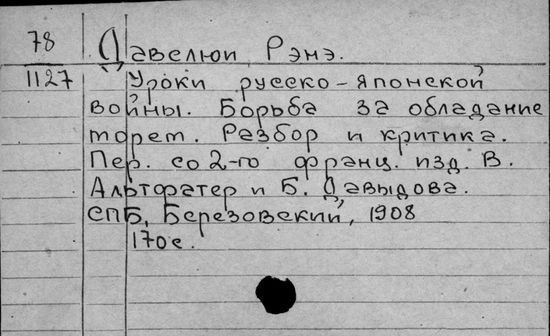 78 Давелюи Рэнэ.
1127 Уроки русско-японской
войны. Борьба за обладание
морем. Разбор и критика.
Пер. со 2-го франц. изд. В.
Альтфатер и Б. Давыдова.
СПБ, Березовский, 1908
170 с.